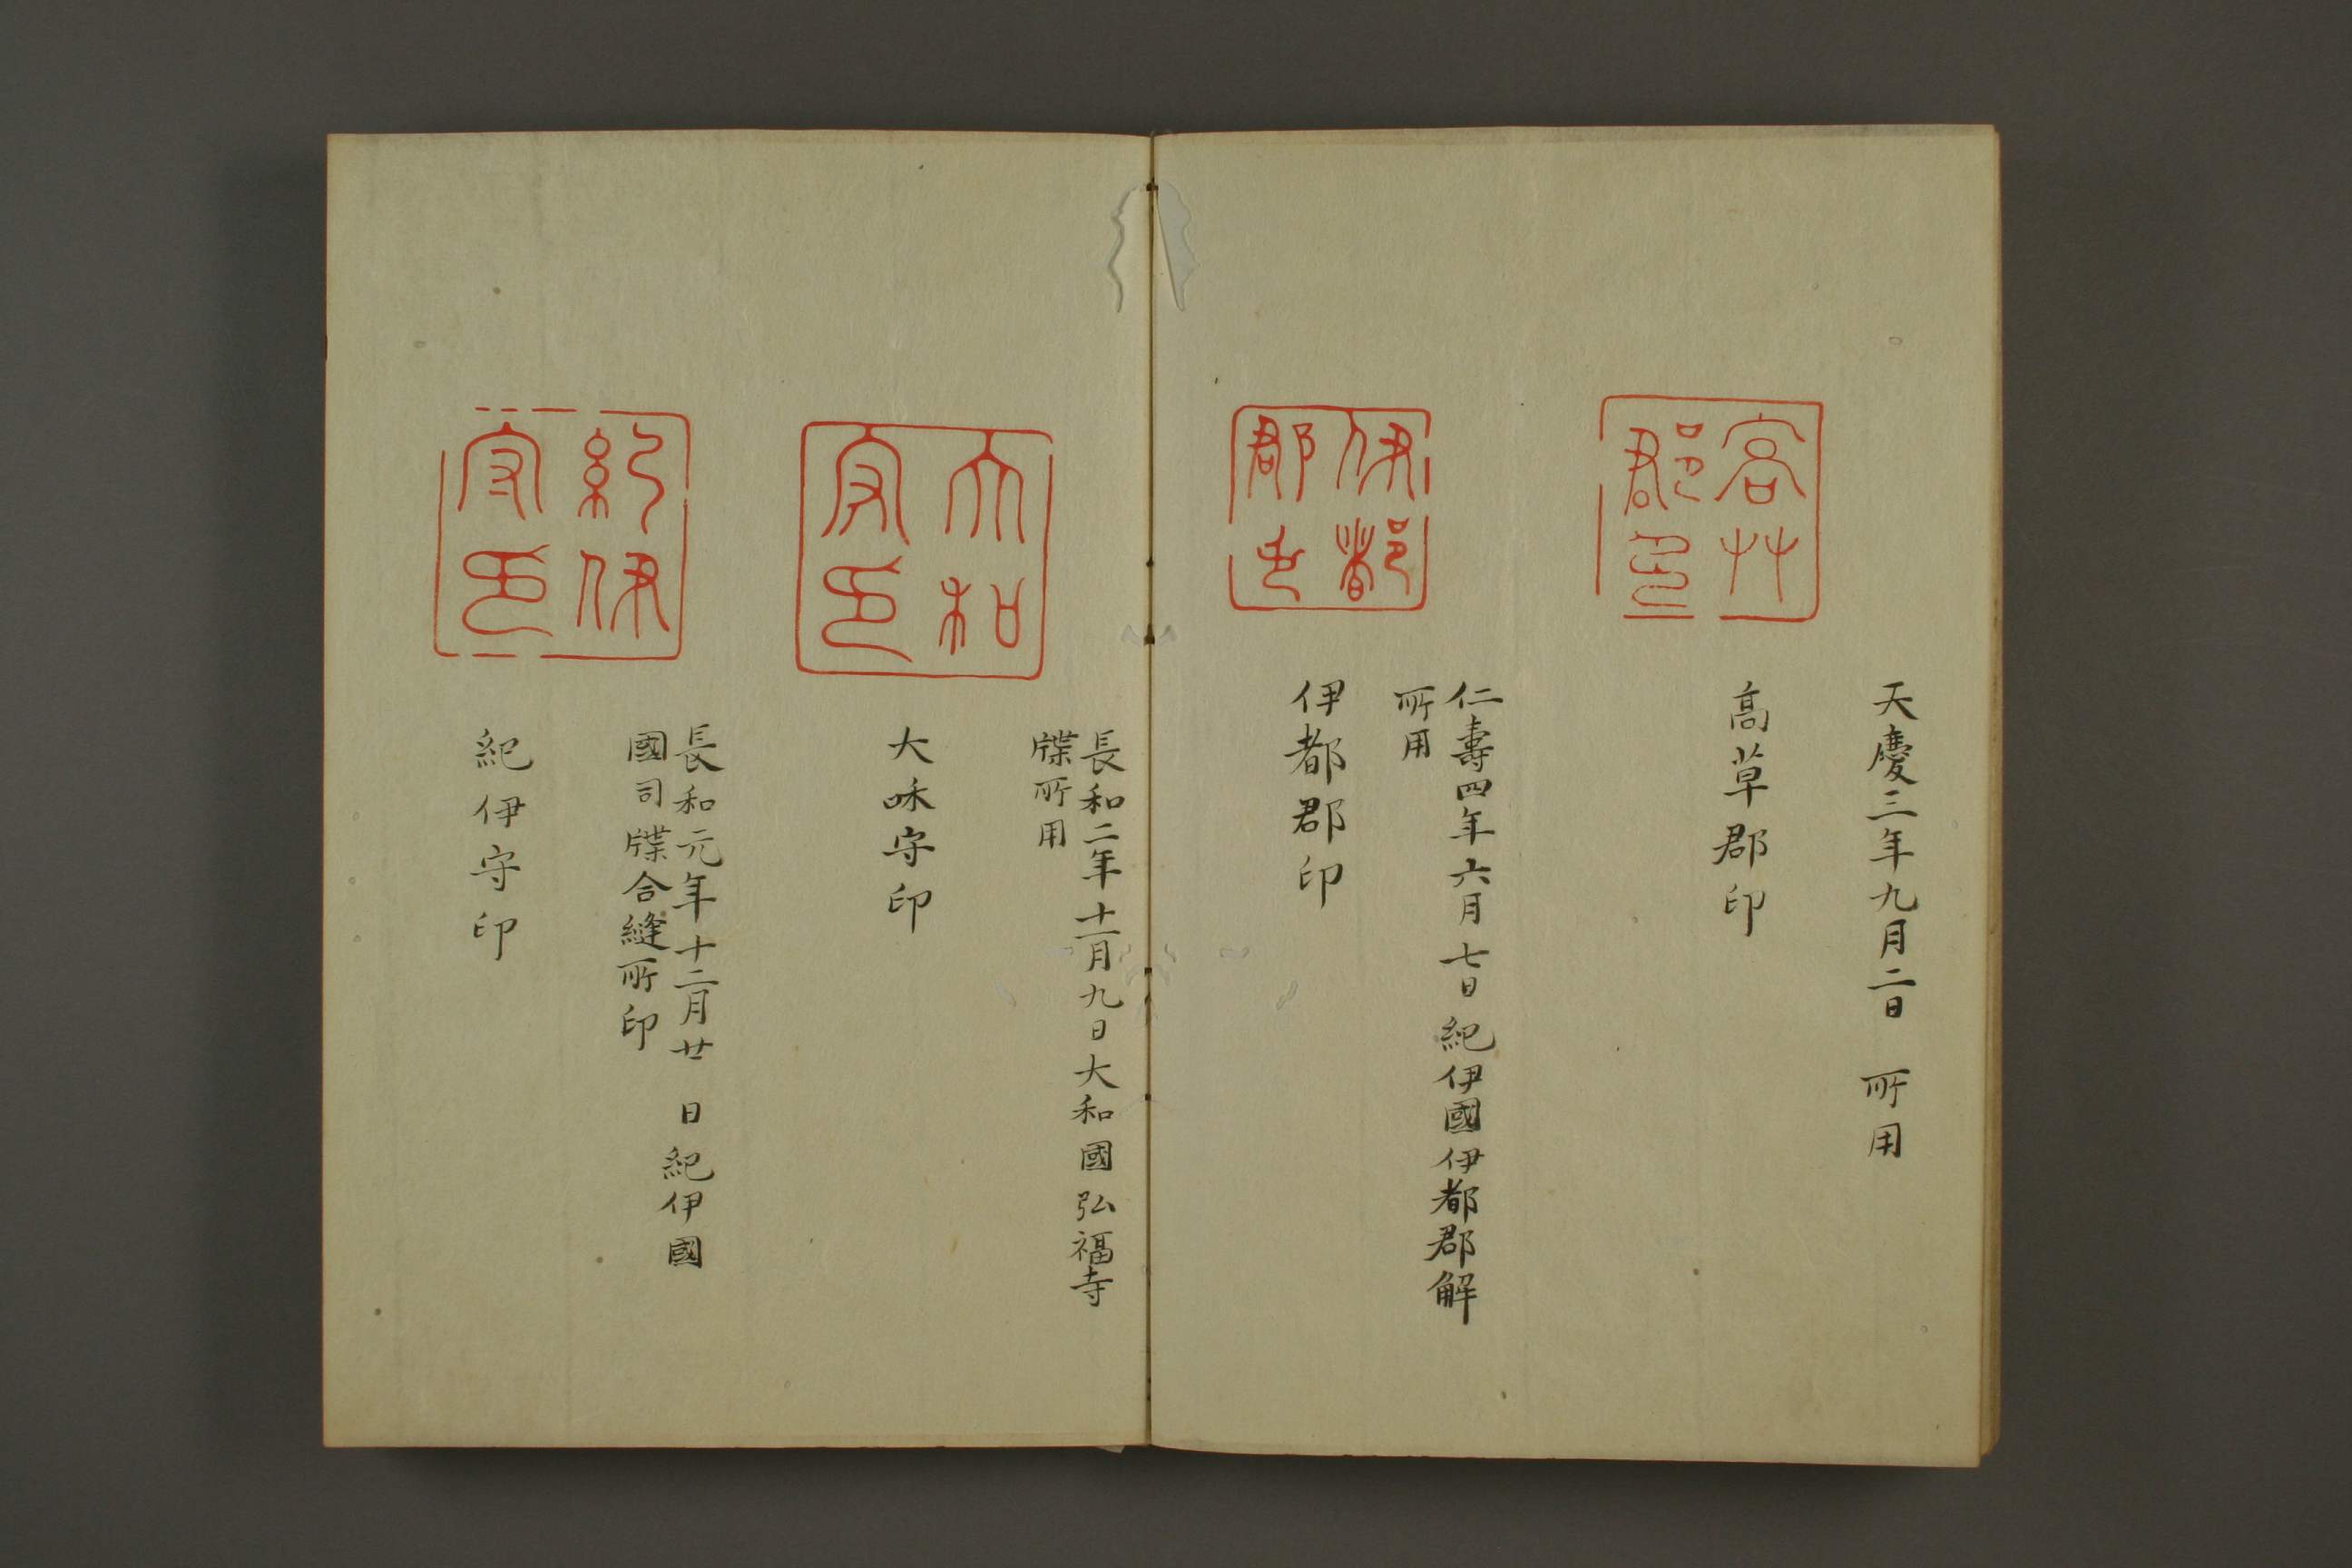 高草
郡印
天慶三年九月二日 所用
高草郡印
伊都
郡印
仁壽四年六月七日紀伊國伊都郡解
所用
伊都郡印
大和
守印
長和二年十一月九日大和國弘福寺
牒所用
大咊守印
紀伊
守印
長和元年十二月廿 日紀伊國
國司牒合縫所印
紀伊守印